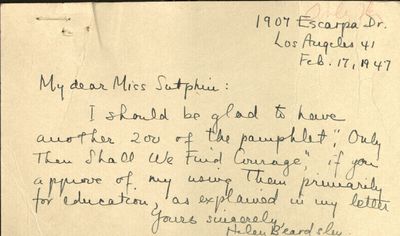 1907 Escarpa Dr.
Los Angeles 41
Feb. 17, 1947
My dear Miss Sutphin:
I should be glad to have
another 200 of the pamphlet, "Only
Then Shall We Find Courage", if you
approve of my using them primarily
for education, as explained in my letter
Yours sincerely
Helen Beardsley